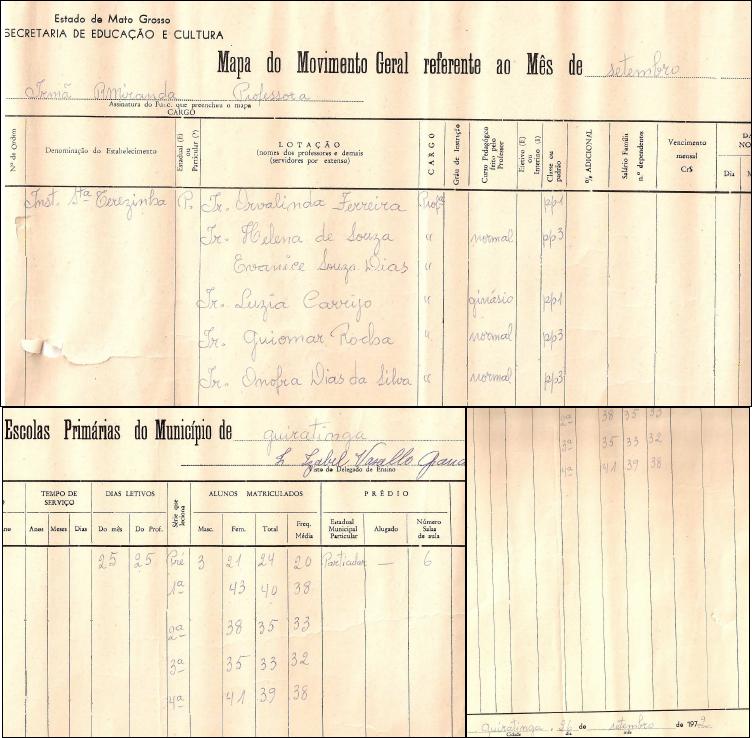 Estado de Mato Grosso
SECRETARIA DE EDUCAÇÃO E CULTURA
Mapa do Movimento Geral referente ao Mês de setembro
Irmã P. Miranda Professora
Assinatura do Func. que preencheu o mapa
CARGO
Nº de Ordem
Denominação do Estabelecimento
Estadual (E) ou Particular (P)
LOTAÇÃO
(nomes dos professores e demais servidores por extenso)
CARGO
Gráu de Instrução
Curso Pedagógico feito pelo Professor
Efetivo (E) ou Interino (I)
Classe ou padrão
% ADICIONAL
Salário Família n.º dependentes
Vencimento mensal Cr$
Dia
Inst. Sta Terezinha P. Ir. Orvalinda Ferreira Profª pp1
Ir. Helena de Souza " normal pp3
Evanice Souza Dias "
Ir. Luzia Carrijo " ginásio pp1
Ir. Guiomar Rocha " normal pp3
Ir. Onofra Dias da Silva " normal pp3
Escolas Primárias do Município de guiratinga
Izabel Vasallo
Visto do Delegado de Ensino
TEMPO DE SERVIÇO
DIAS LETIVOS
Série que leciona
ALUNOS MATRICULADOS
PRÉDIO
Anos Meses Dias Do mês Do Prof. Masc. Fem. Total Freq. Média Estadual Municipal Particular Alugado Número Salas de aula
25 25 Pré 3 21 24 20 Particular — 6
1ª 43 40 38
2ª 38 35 33
3ª 35 33 32
4ª 41 39 38
2ª 38 35 33
3ª 35 33 32
4ª 41 39 38
guiratinga, 26 de setembro de 1972
Cidade dia mês